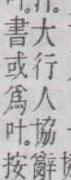 大行人協辭
書或爲叶。按